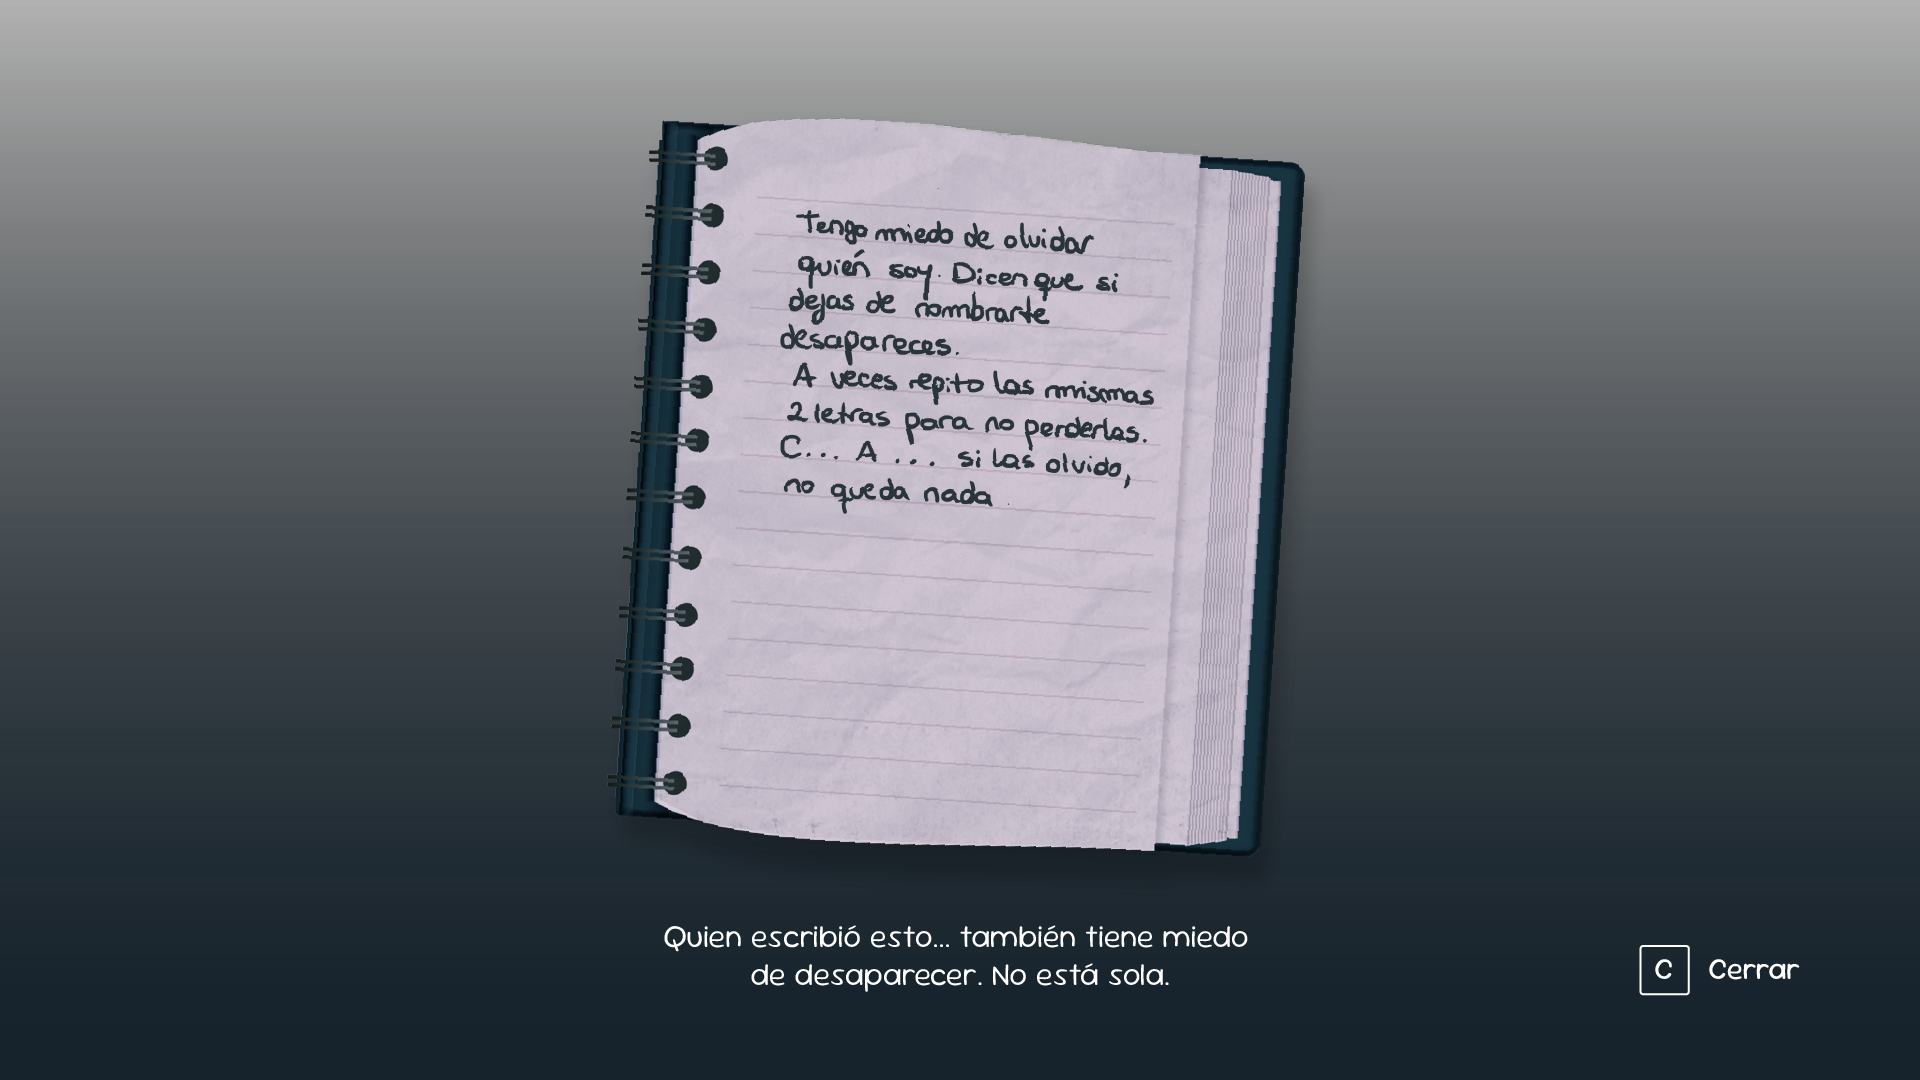 Tengo miedo de olvidar
quién soy. Dicen que si
dejas de nombrarte
desapareces.
A veces repito las mismas
2 letras para no perderlas.
C... A ... si las olvido,
no queda nada.
Quien escribió esto... también tiene miedo
de desaparecer. No está sola.
C Cerrar